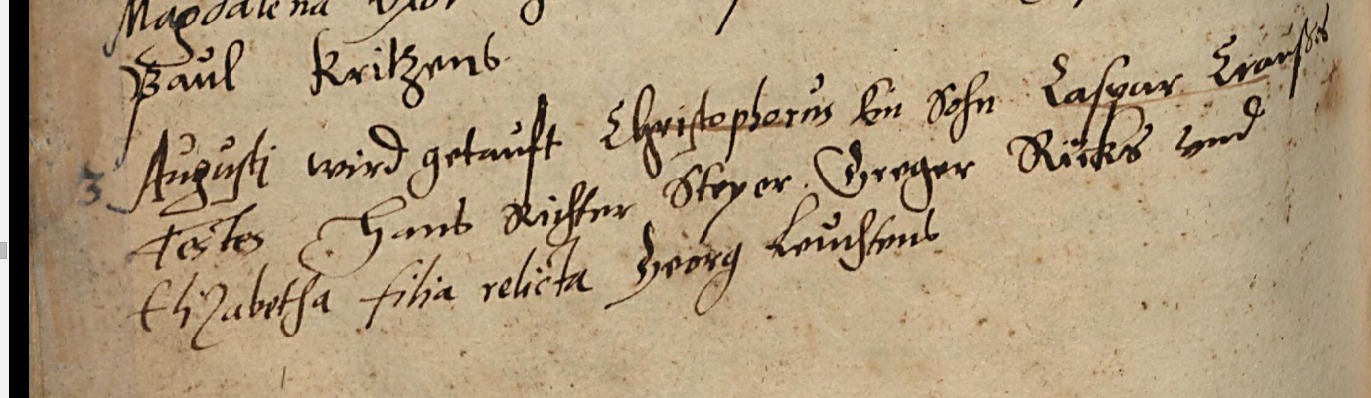 Magdalena Uxor
Paul Kritzens
3 Augusti wird getauft Christophorus Ein Sohn Caspar Craußes
Testes Hans Richter Steyer Greger Rücks und
Elizabetha filia relicta Georg Leuchsens